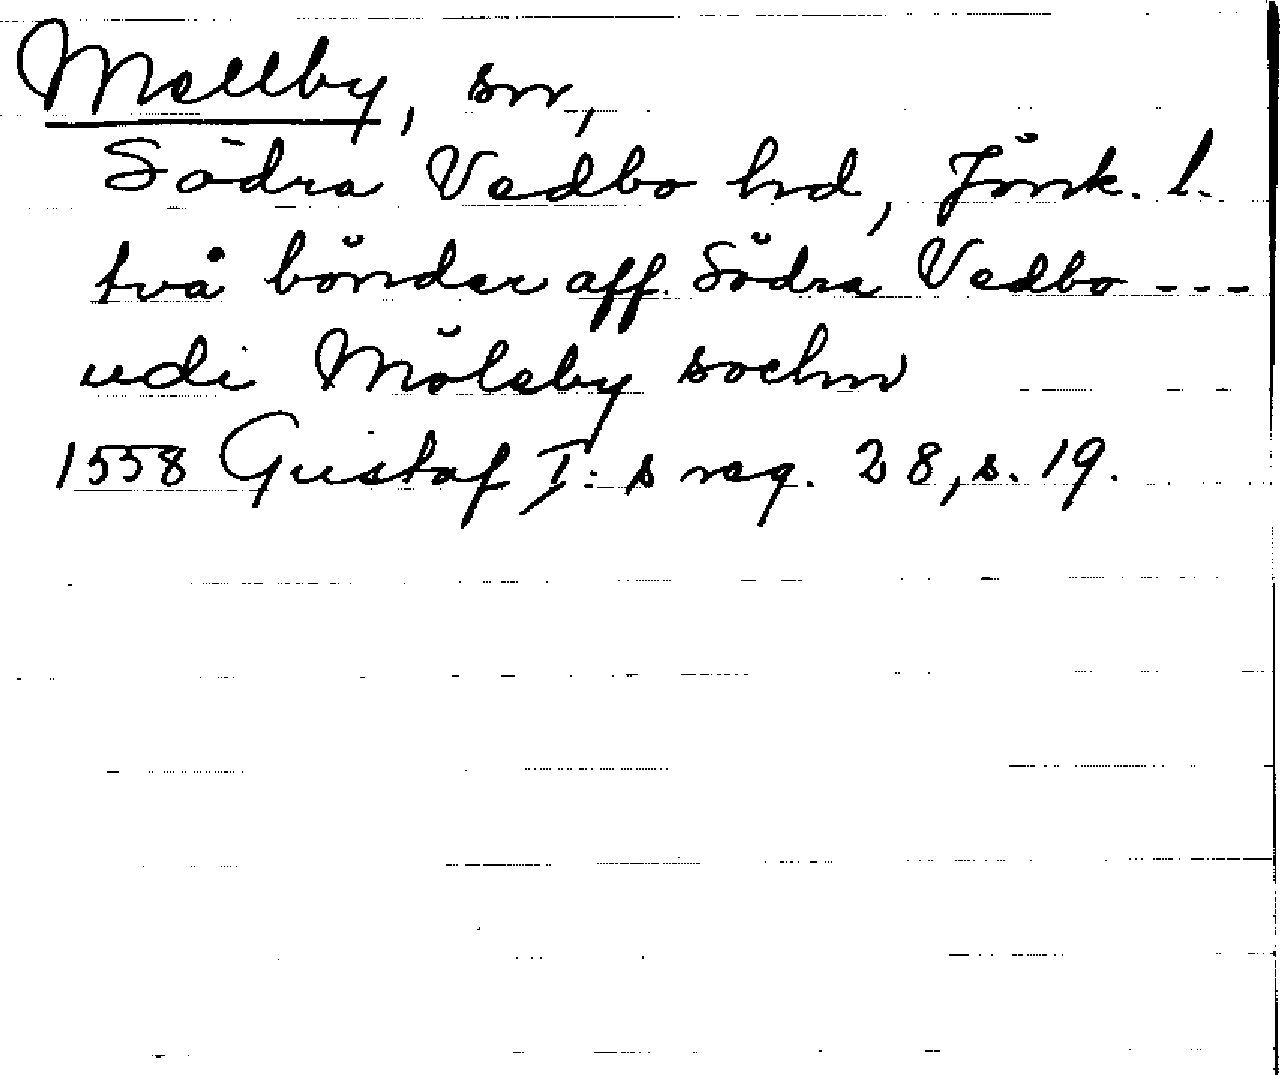 Mellby, sn,
Södra Vedbo hrd, Jönk. l.
två bönder aff. Södra Vedbo ---
udi Möleby sochn
1558 Gustaf I:s reg. 28, s. 19.